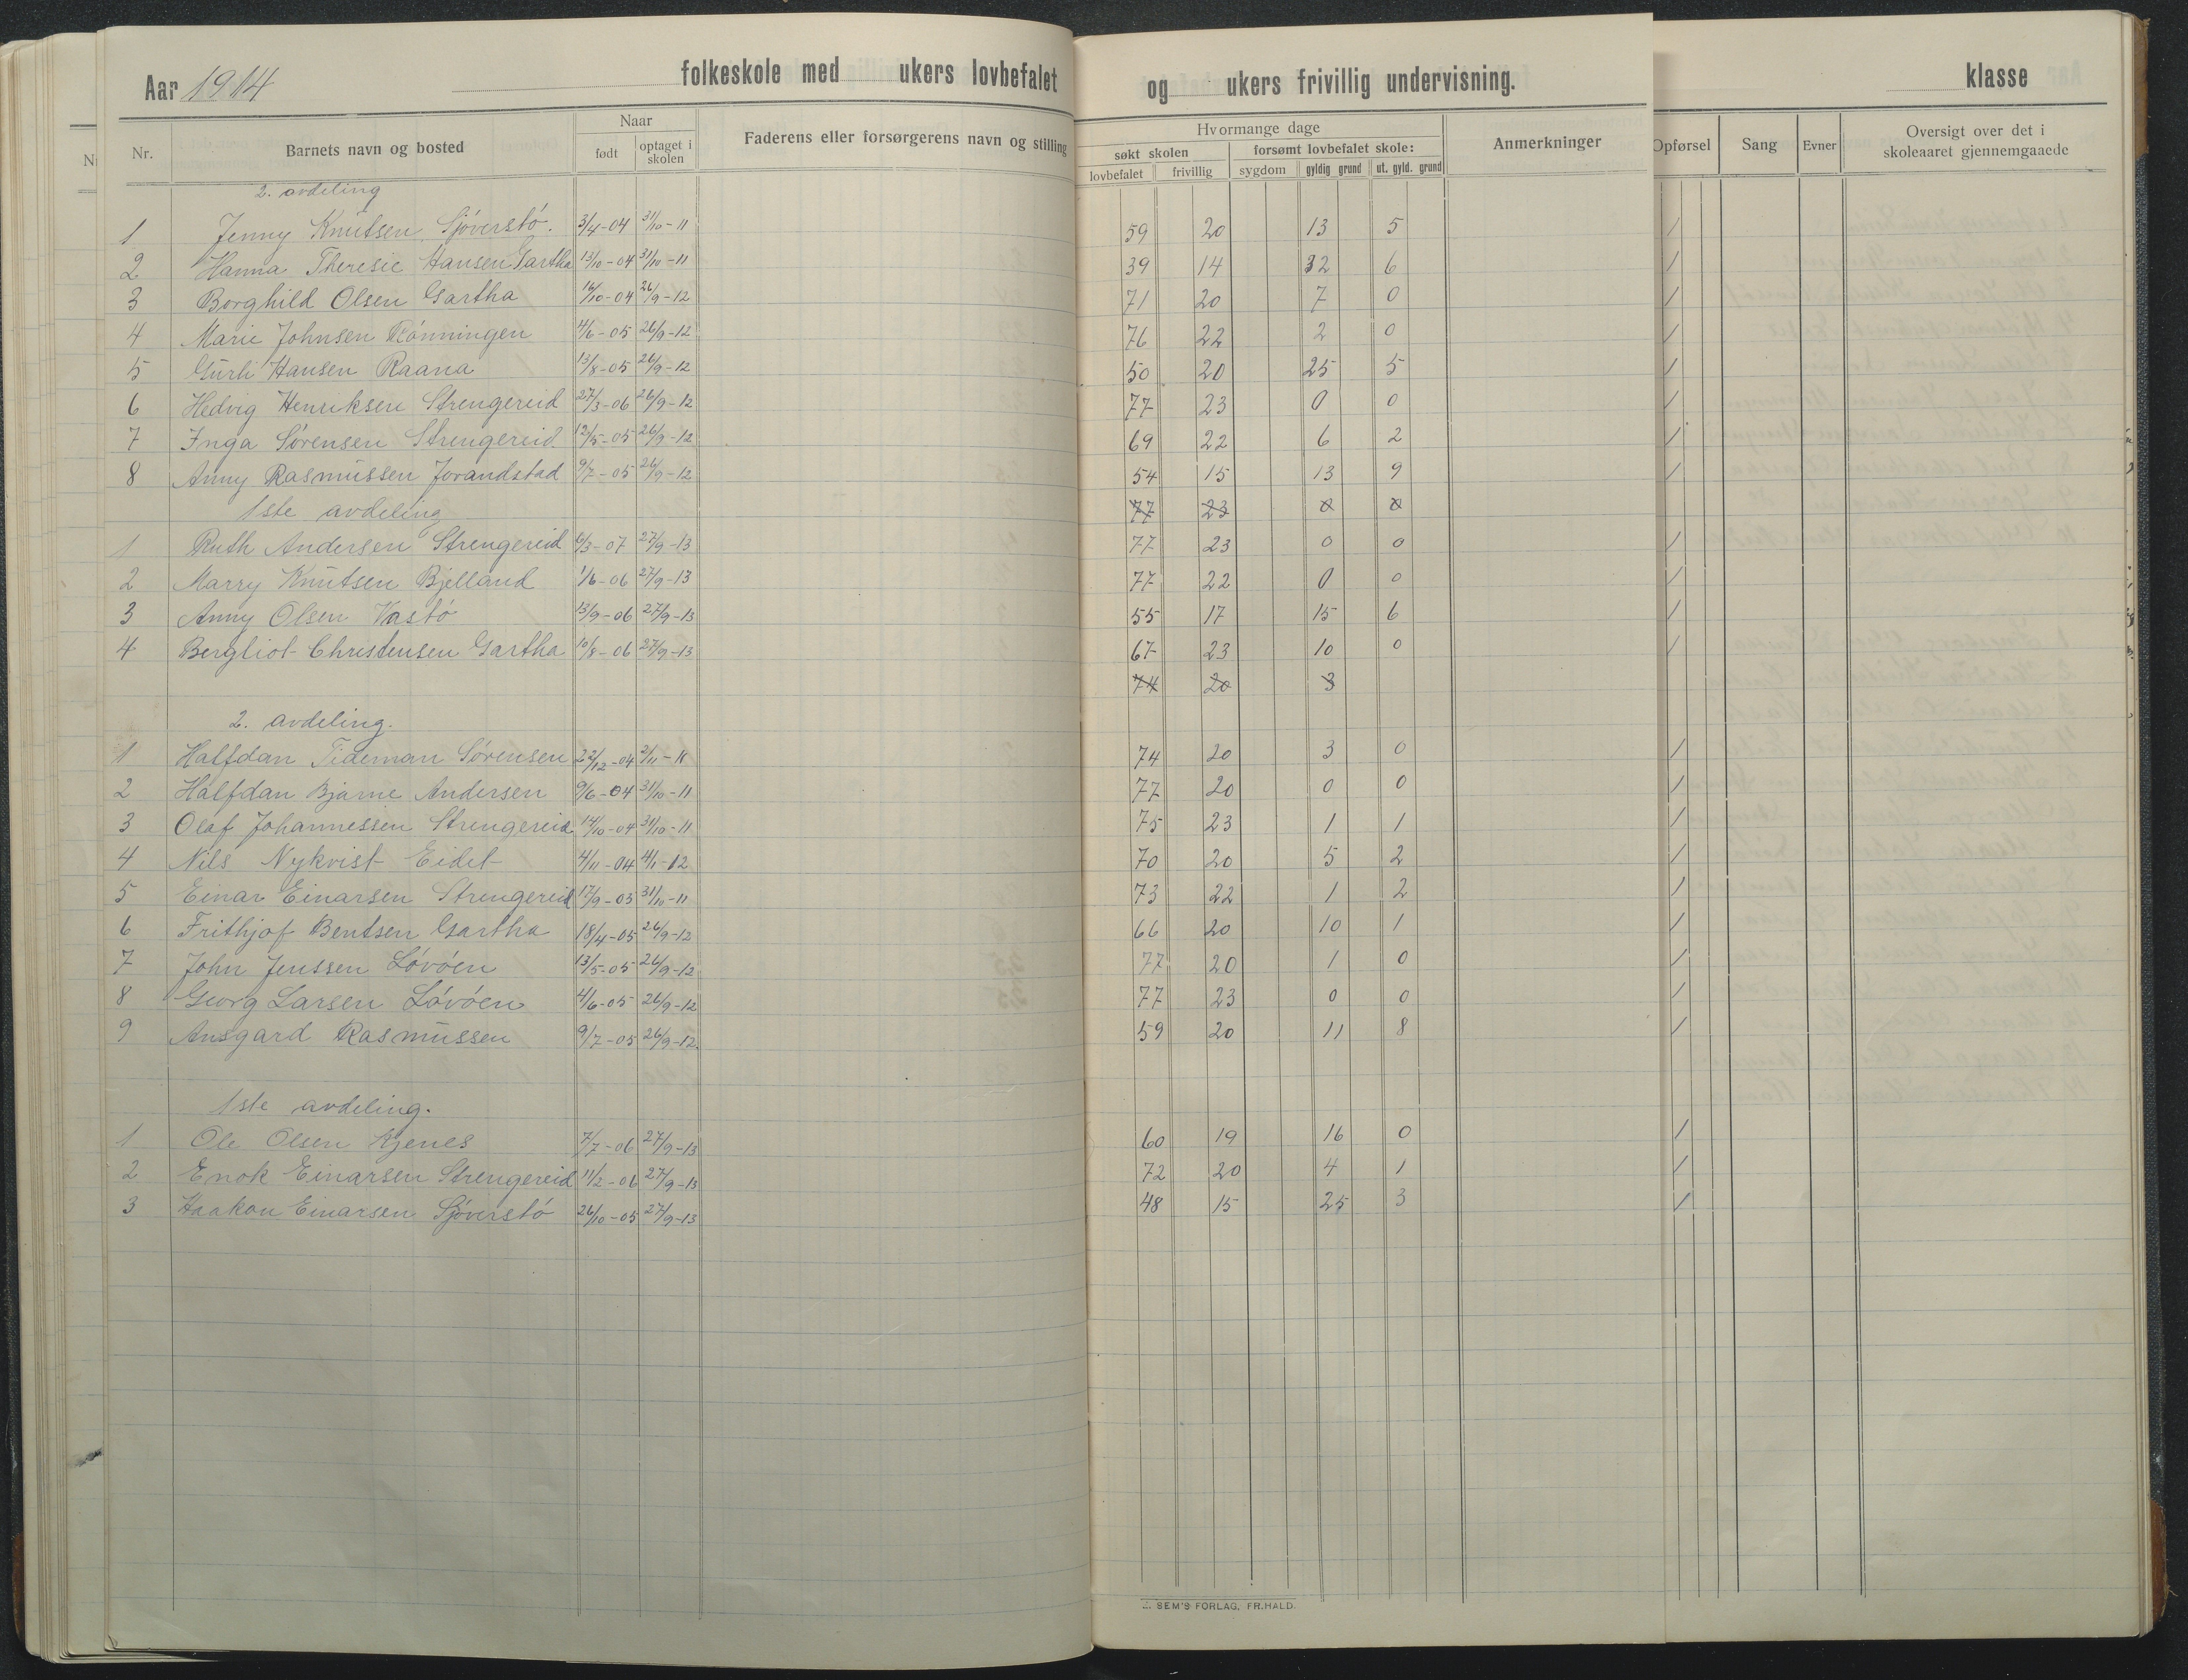 Aar 1914 folkeskole med ukers lovbefalet og ukers frivillig undervisning. klasse
Nr. Barnets navn og bosted Naar født optaget i skolen Faderens eller forsørgerens navn og stilling Hvormange dage søkt skolen lovbefalet frivillig forsømt lovbefalet skole: sygdom gyldig grund ut. gyld. grund Anmerkninger Opførsel Sang Evner Oversigt over det i skoleaaret gjennemgaaede
2. avdeling
1 Jenny Knutsen Sjöverstö. 3/4-04 31/10-11 59 20 13 5 /
2 Hanna Theresie Hansen Gartha 13/10-04 31/10-11 39 14 32 6 /
3 Borghild Olsen Gartha 16/10-04 26/9-12 71 20 7 0 /
4 Marie Johnsen Rönningen 4/6-05 26/9-12 76 22 2 0 /
5 Gurli Hansen Raana 13/8-05 26/9-12 50 20 25 5 /
6 Hedvig Henriksen Strengereid 27/3-06 26/9-12 77 23 0 0 /
7 Inga Sörensen Strengereid 12/5-05 26/9-12 69 22 6 2 /
8 Anny Rasmussen Jorandstad 9/7-05 26/9-12 54 15 13 9 /
1ste avdeling 77 23 0 0
1 Ruth Andersen Strengereid 6/3-07 27/9-13 77 23 0 0 /
2 Marry Knutsen Bjelland 1/6-06 27/9-13 77 22 0 0 /
3 Anny Olsen Vastö 13/9-06 27/9-13 55 17 15 6 /
4 Bergliot Christensen Gartha 10/8-06 27/9-13 67 23 10 0 /
74 20 3
2. avdeling.
1 Halfdan Tideman Sörensen 22/12-04 2/11-11 74 20 3 0 /
2 Halfdan Bjarne Andersen 9/6-04 31/10-11 77 20 0 0 /
3 Olaf Johannessen Strengereid 14/10-04 31/10-11 75 23 1 1 /
4 Nils Nykvist Eidet 4/11-04 4/1-12 70 20 5 2 /
5 Einar Einarsen Strengereid 17/9-05 31/10-11 73 22 1 2 /
6 Frithjof Bentsen Gartha 18/4-05 26/9-12 66 20 10 1 /
7 John Jenssen Lövöen 13/5-05 26/9-12 77 20 1 0 /
8 Georg Larsen Lövöen 4/6-05 26/9-12 77 23 0 0 /
9 Ansgard Rasmussen 9/7-05 26/9-12. 59 20 11 8 /
1ste avdeling.
1 Ole Olsen Kjenes 7/7-06 27/9-13 60 19 16 0 /
2 Enok Einarsen Strengereid 11/2-06 27/9-13 72 20 4 1 /
3 Haakon Einarsen Sjöverstö 26/10-05 27/9-13 48 15 25 3 /
SEM'S FORLAG, FR.HALD.